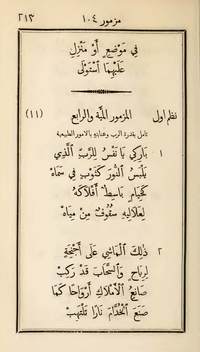 مزمور ١٠٤ ٢١٣
فِي مَوْضِعٍ أَوْ مَنْزِلِ
عَلَيْهِمَا ٱسْتَوْلَى
نظم اول المزمور المئة والرابع (١١)
تأمل بقدرة الرب وعنايته بالامور الطبيعية
١ بَارِكِي يَا نَفْسُ لِلرَّبِّ ٱلَّذِي
يَلْبَسُ ٱلنُّورَ كَثَوْبٍ فِي سَمَاهْ
كَخِيَامٍ بَاسِطٌ أَفْلَاكَهُ
لِعَلَالِيهِ سُقُوفٌ مِنْ مِيَاهْ
٢ ذٰلِكَ ٱلْمَاشِي عَلَى أَجْنِحَةِ
ٱرِّيَاحِ وَٱلسَّحَابَ قَدْ رَكِبْ
صَانِعُ ٱلْأَمْلَاكِ أَرْوَاحًا كَمَا
صَنَعَ ٱلْخُدَّامَ نَارًا تَلْتَهِبْ